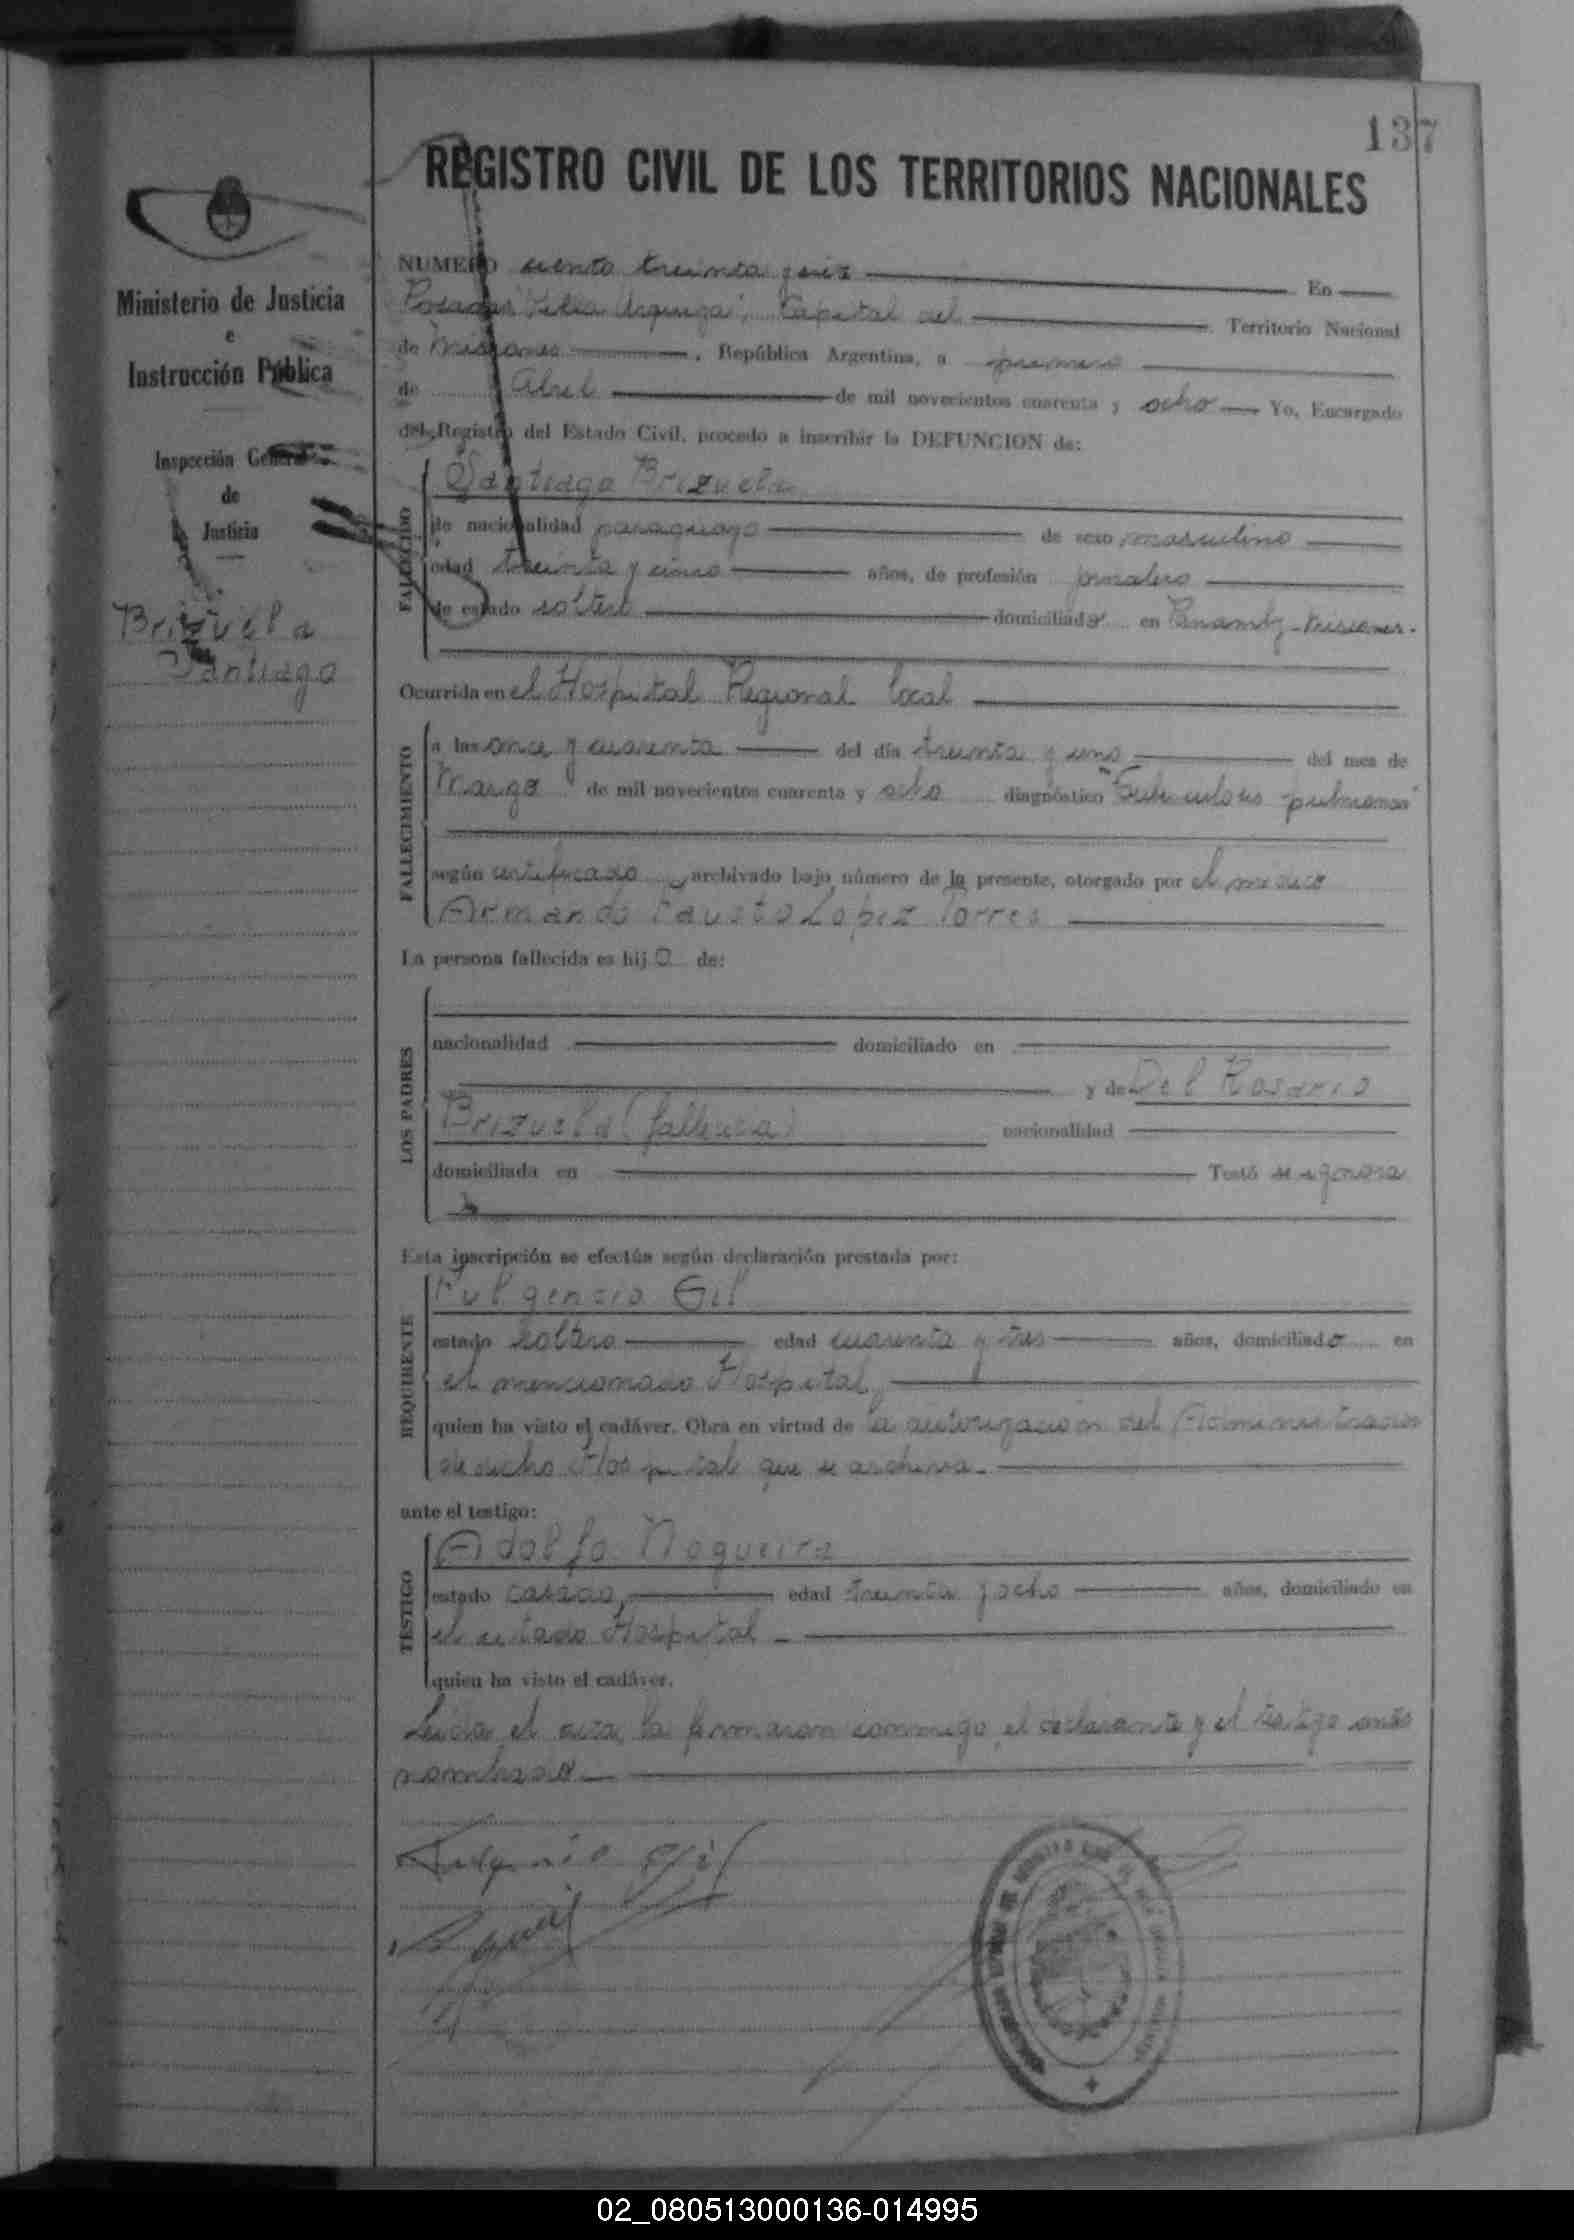 137
REGISTRO CIVIL DE LOS TERRITORIOS NACIONALES
Ministerio de Justicia
e
Instrucción Pública
Inspección General
de
Justicia
Brizuela
Santiago
NUMERO ciento treinta y seis En
Posadas "Villa Urquiza", Capital del Territorio Nacional
de Misiones, República Argentina, a primero
de Abril de mil novecientos cuarenta y ocho Yo, Encargado
del Registro del Estado Civil, procedo a inscribir la DEFUNCION de:
FALLECIDO
Santiago Brizuela
de nacionalidad paraguaya de sexo masculino
edad treinta y cinco años, de profesión jornalero
de estado soltero domiciliado en Panambí-Misiones-
Ocurrida en el Hospital Regional local
FALLECIMIENTO
a las once y cuarenta del día treinta y uno del mes de
Marzo de mil novecientos cuarenta y ocho diagnóstico "Tuberculosis pulmonar"
según certificado, archivado bajo número de la presente, otorgado por el médico
Armando Fausto Lopez Torres
La persona fallecida es hijo de:
LOS PADRES
nacionalidad domiciliado en
y de Del Rosario
Brizuela (fallecida) nacionalidad
domiciliada en Testó se ignora
Esta inscripción se efectúa según declaración prestada por:
REQUIRENTE
Fulgencio Gil
estado soltero edad cuarenta y tres años, domiciliado en
el mencionado Hospital,
quien ha visto el cadáver. Obra en virtud de la autorización del Administrador
de dicho Hospital que se archiva.-
ante el testigo:
TESTIGO
Adolfo Nogueira
estado casado, edad treinta y ocho años, domiciliado en
el citado Hospital -
quien ha visto el cadáver.
Leida el acta, la firmaron conmigo, el declarante y el testigo antes
nombrado.-
Fulgencio Gil
02_080513000136-014995